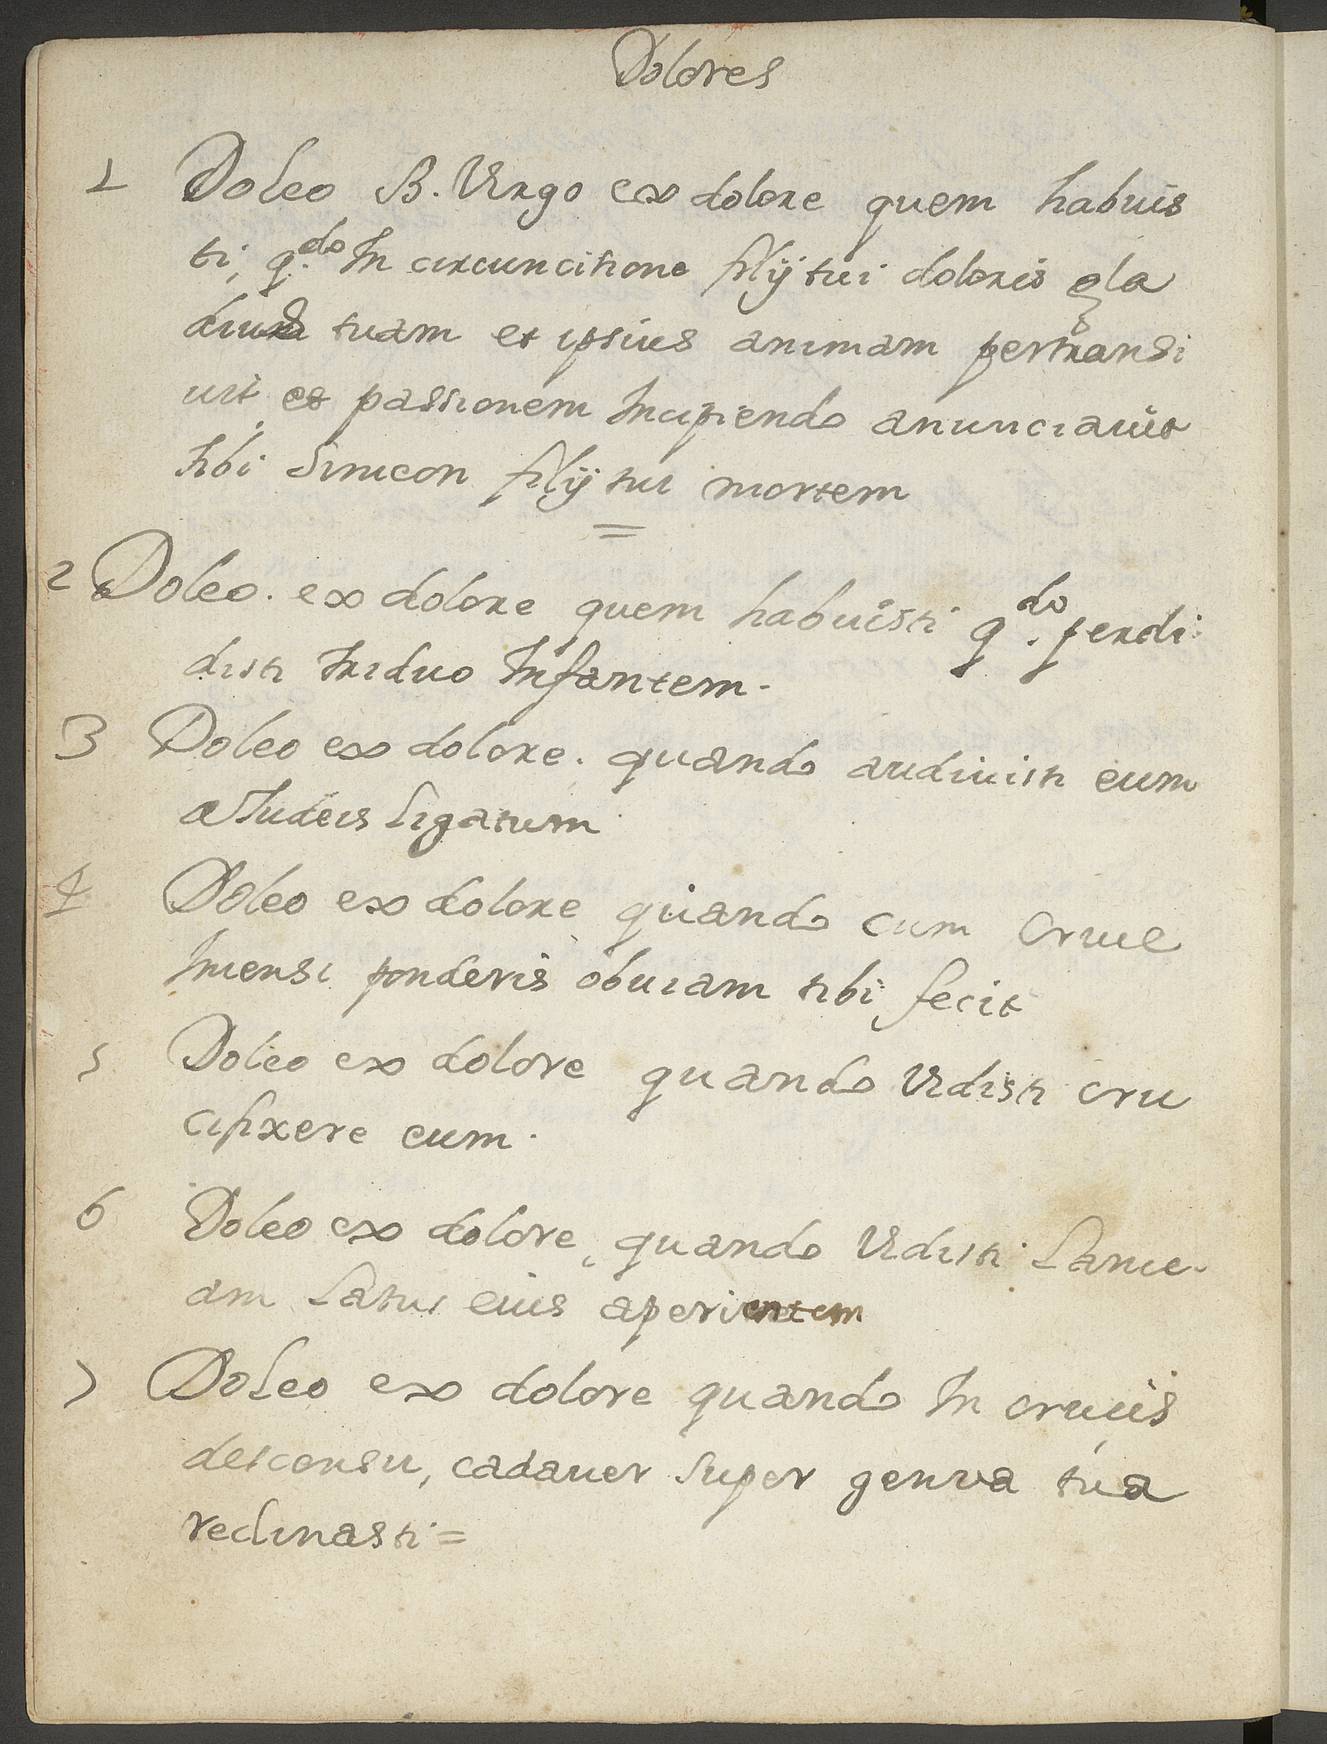 Dolores
1 Doleo B. Virgo ex dolore quem habuis
ti, q.do In circuncitione filij tui doloris gla
dius tuam et ipsius animam pertransi
uit, et passionem Incipiendo anunciauit
tibi Simeon filij tui mortem
=
2 Doleo. ex dolore quem habuisti q.do perdi:
disti triduo Infantem.
3 Doleo ex dolore. quando audiuisti eum
a Iudeis ligatum
4 Doleo ex dolore quando cum cruce
Inmensi ponderis obuiam tibi fecit
5 Doleo ex dolore quando Vidisti cru
cifixere eum.
6 Doleo ex dolore, quando Vidisti Lance.
am Latus eius aperientem
7 Doleo ex dolore quando In crucis
descensu, cadauer super genua tua
reclinasti =